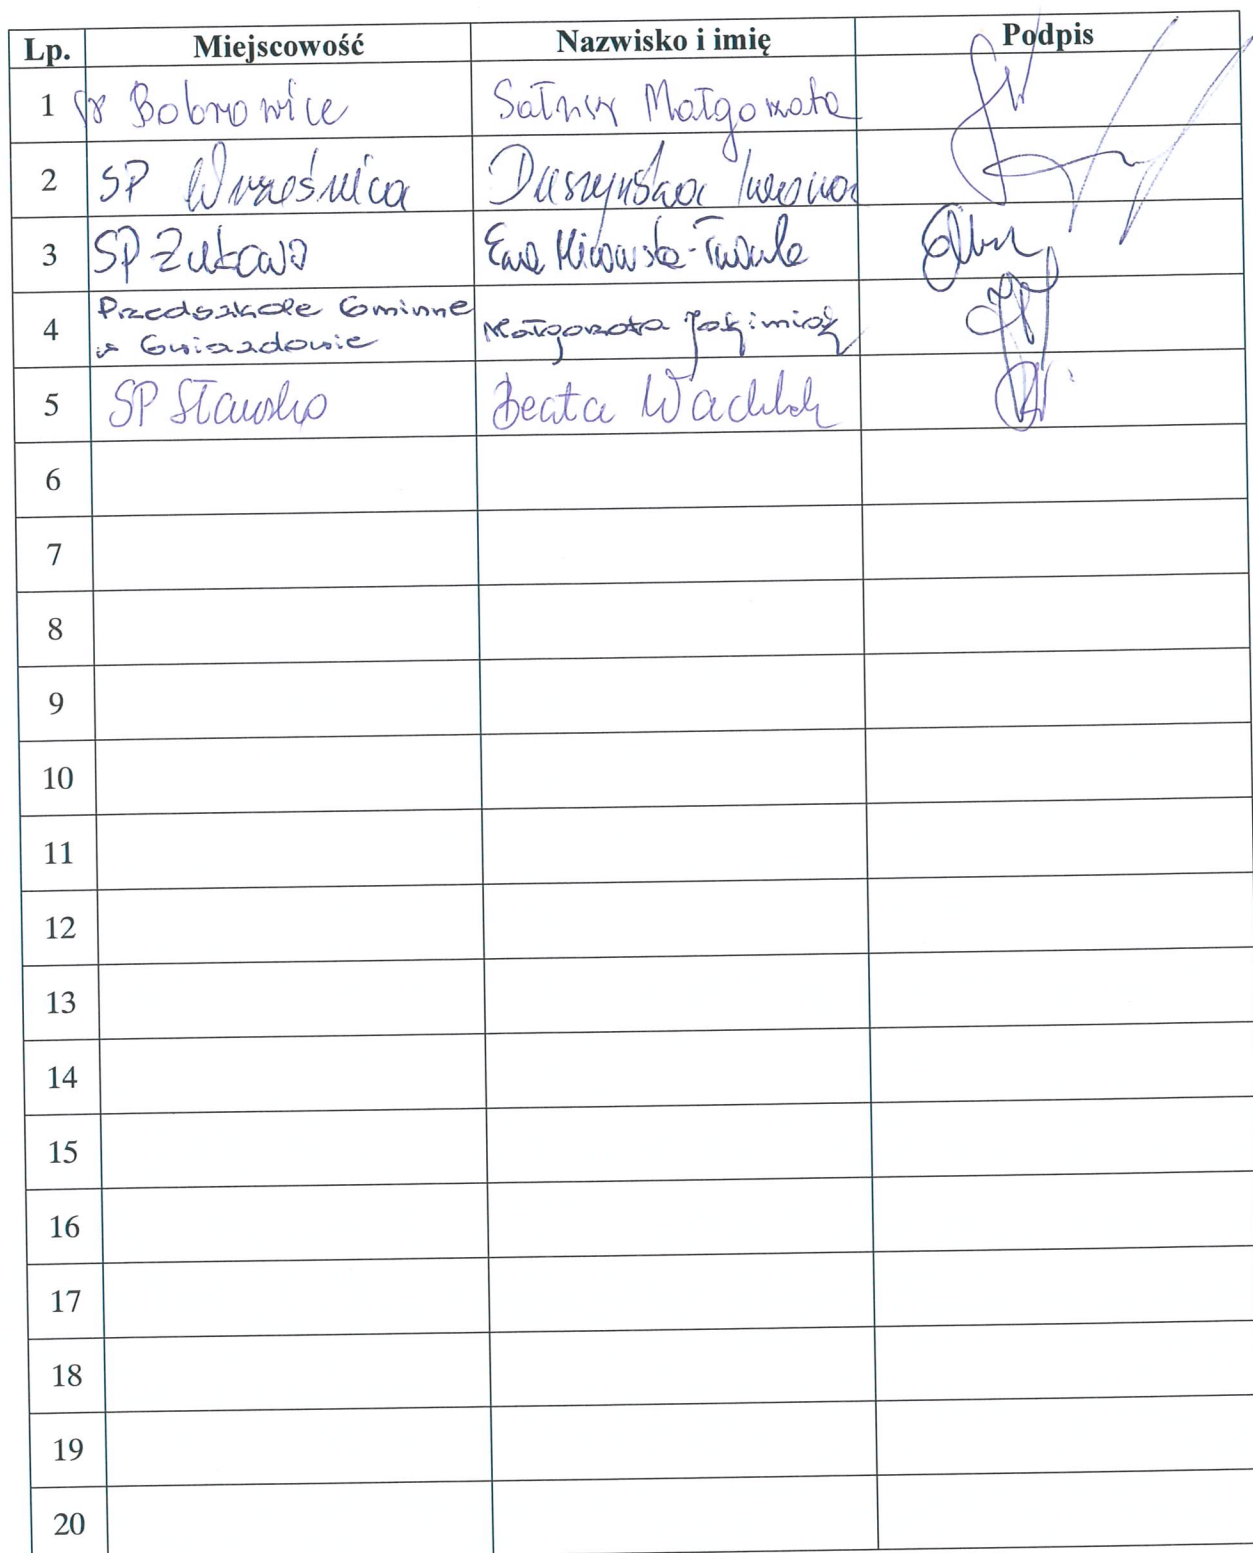 Lp. Miejscowość Nazwisko i imię Podpis
1 SP Bobrowice Małgorzata
2 SP Wrześnica Duszyńska Iwona
3 SP Żukowo Ewa
4 Przedszkole Gminne
w Gwiazdowie Małgorzata
5 SP Sławsko Beata
6
7
8
9
10
11
12
13
14
15
16
17
18
19
20